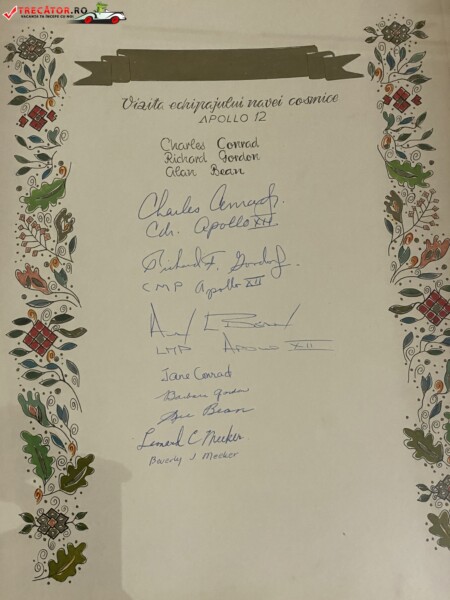 TRECĂTOR.RO
VACANȚA TA ÎNCEPE CU NOI
Vizita echipajului navei cosmice
APOLLO 12
Charles Conrad
Richard Gordon
Alan Bean
Charles Conrad Jr.
Cdr. Apollo XII
Richard F. Gordon Jr.
CMP Apollo XII
Alan L Bean
LMP Apollo XII
Jane Conrad
Barbara Gordon
Sue Bean
Leonard C Meeker
Beverly J Meeker